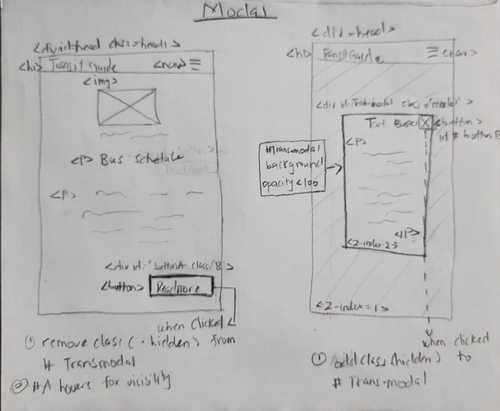 Modal
<div id=head class=head>
<h1> Transit Guide <nav>
<img>
<P> Bus Schedule
<P>
<div id="buttonA class=B>
<button> Readmore
when clicked
① remove class(.hidden) from
# Transmodal
② #A hovers for visibility
<div =head>
<h1> Transit Guide <nav>
<div id=Transmodal class=modal>
Text Buses X <button>
id # button B
<P>
#Transmodal
background
opacity<100
</P>
<Z-index=2>
<Z-index=1>
when clicked
① add class(hidden) to
# Trans-modal